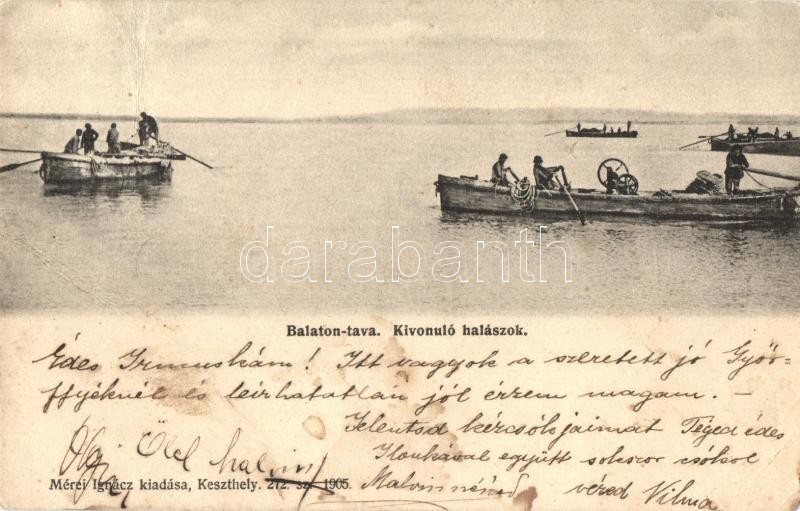 darabanth
Balaton-tava. Kivonuló halászok.
Édes Irmuskám! Itt vagyok a szeretett jó Győr-
ffyéknél és leirhatatlán jól érzem magam. –
Jelentsd kézcsókjaimat Téged édes
Ilonkával együtt sokszor csókol
Ölel
Malvin néned véred Vilma
Mérei Ignácz kiadása, Keszthely. 272. sz. 1905.